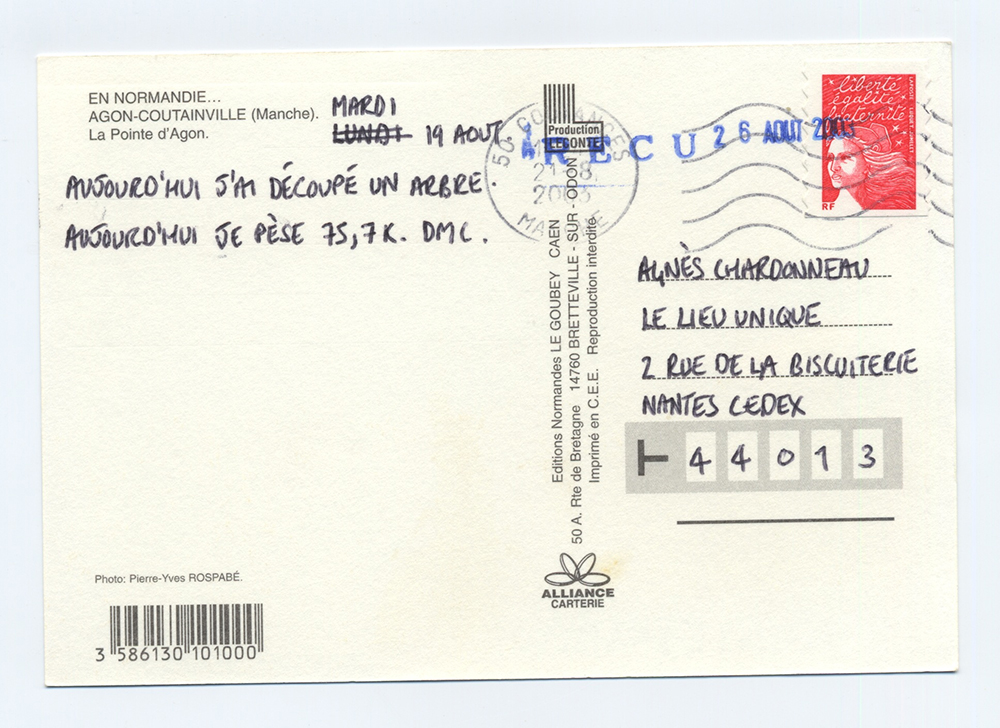 EN NORMANDIE...
AGON-COUTAINVILLE (Manche).
La Pointe d'Agon.
MARDI
LUNDI 19 AOUT
AUJOURD'HUI J'AI DÉCOUPÉ UN ARBRE.
AUJOURD'HUI JE PÈSE 75,7K. DMC.
Photo: Pierre-Yves ROSPABÉ.
3 586130 101000
Production
LECONTE
Editions Normandes LE GOUBEY CAEN
50 A. Rte de Bretagne 14760 BRETTEVILLE - SUR - ODON
Imprimé en C.E.E. Reproduction interdite
ALLIANCE
CARTERIE
50 COUTANCES
21-8
2003
MANCHE
RECU 26 AOUT 2003
liberté
égalité
fraternité
LA POSTE
RF
AGNÈS CHARDONNEAU
LE LIEU UNIQUE
2 RUE DE LA BISCUITERIE
NANTES CEDEX
44013